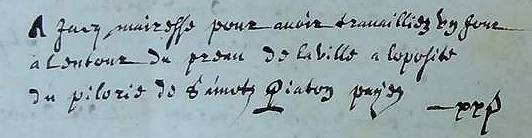 A Jacq mairesse pour avoir travailliez ung jour
a lentour du preau de la ville a loposite
du pilorie de Piaton payez xxp